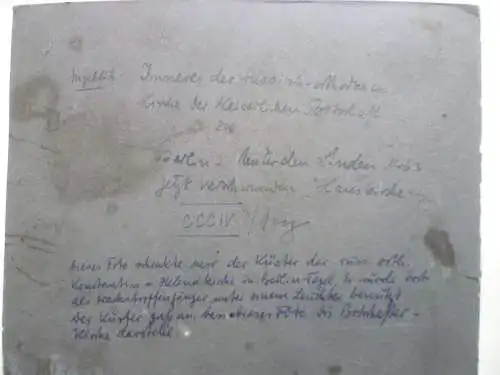 Angeblich Inneres der russisch-orthodoxen
Kirche der Kaiserlichen Botschaft
zu
Berlin, Unter den Linden 63
Jetzt verschwunden
CCCIV
Dieses Foto schenkte mir der Küster der russ. orth.
Konstantin- Helena Kirche in Berlin-Tegel. Es wurde dort
als Wachstropfenfänger unter einem Leuchter benutzt
Der Küster gab an, dass dieses Foto die Botschafts-
Kirche darstelle.